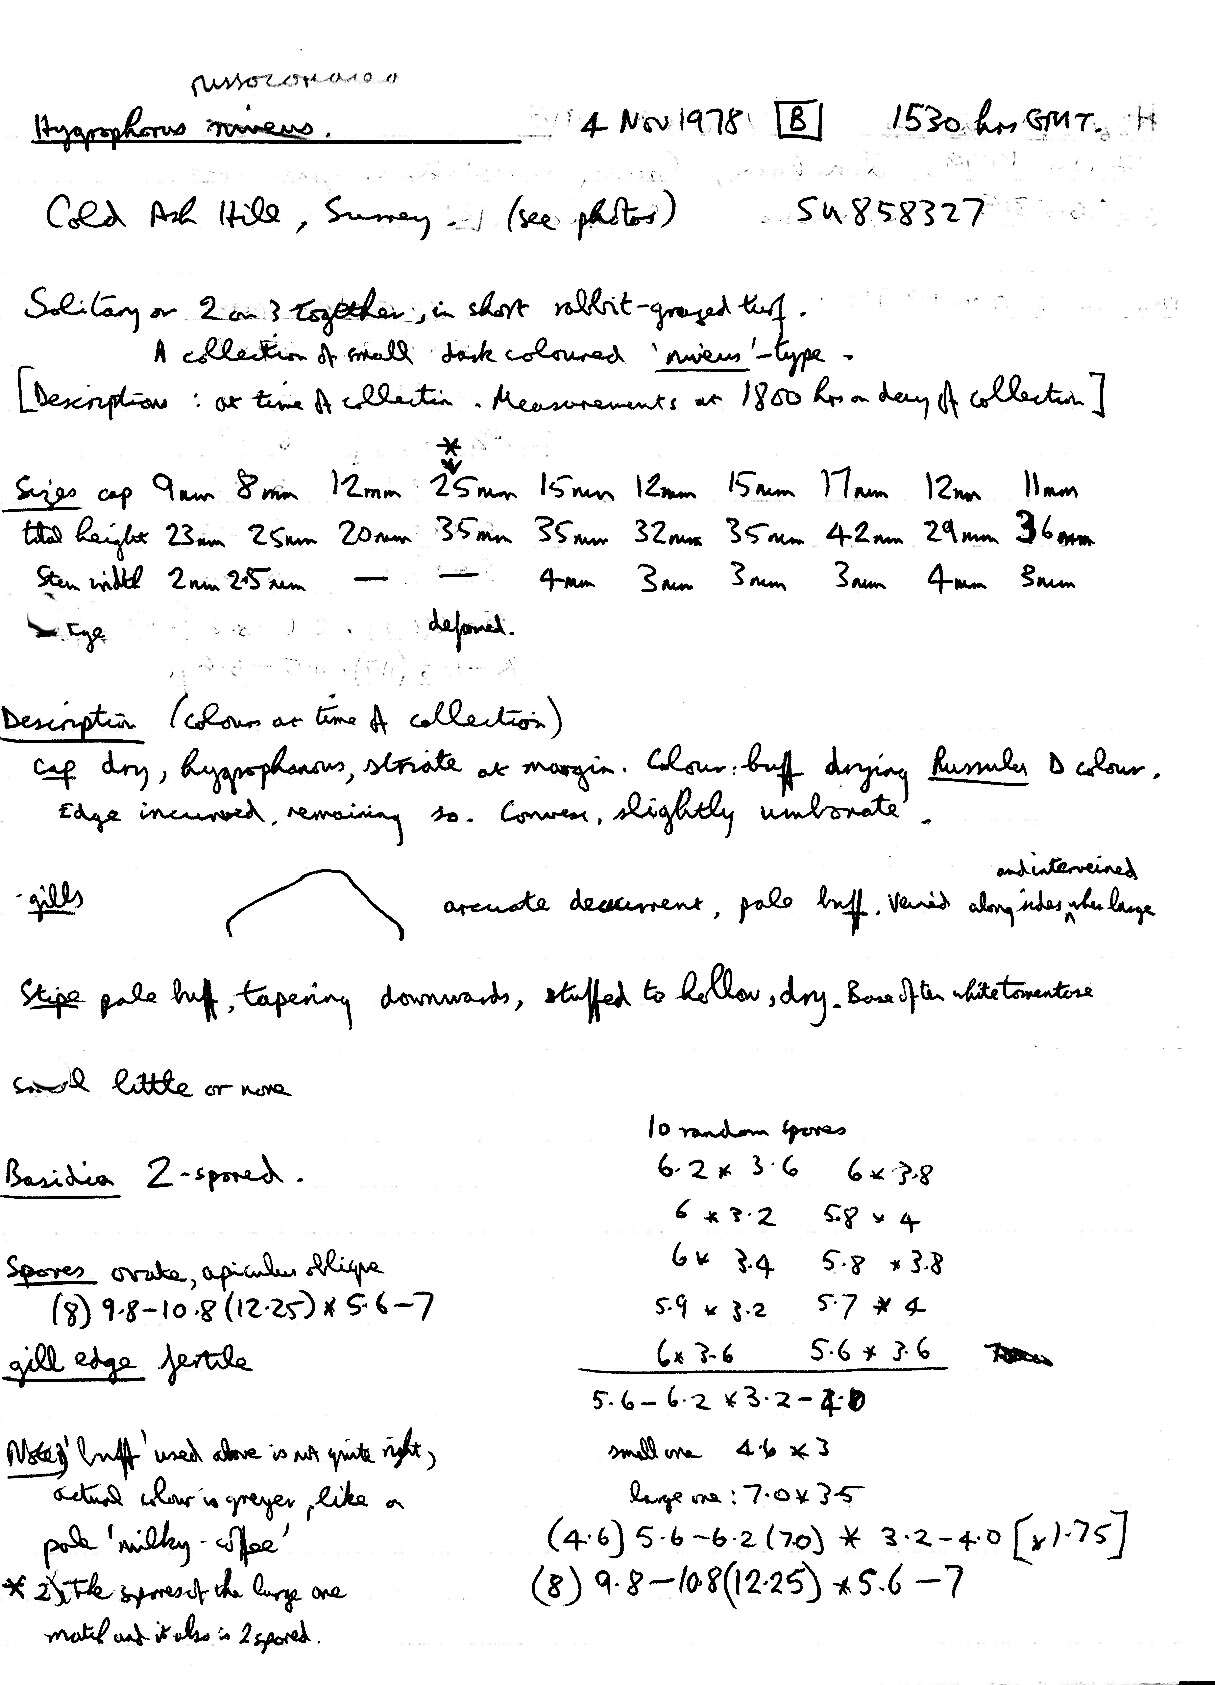 russocoriacea
Hygrophorus niveus. 4 Nov 1978 B 1530 hrs GMT.
Cold Ash Hill, Surrey. (see photos) SU858327
Solitary or 2 or 3 together, in short rabbit-grazed turf.
A collection of small dark coloured 'niveus'-type.
[Descriptions: at time of collection. Measurements at 1800 hrs on day of collection]
*
Sizes cap 9mm 8mm 12mm 25mm 15mm 12mm 15mm 17mm 12mm 11mm
total height 23mm 25mm 20mm 35mm 35mm 32mm 35mm 42mm 29mm 36mm
Stem width 2mm 2.5mm — — 4mm 3mm 3mm 3mm 4mm 3mm
deformed.
Description (colours at time of collection)
cap dry, hygrophanous, striate at margin. Colour: buff drying Russula D colour.
Edge incurved, remaining so. Convex, slightly umbonate.
and interveined
gills arcuate decurrent, pale buff, veined along sides when large
Stipe pale buff, tapering downwards, stuffed to hollow, dry. Base often white tomentose
smell little or none
10 random spores
Basidia 2-spored.
6.2 * 3.6 6 * 3.8
6 * 3.2 5.8 * 4
Spores ovate, apiculus oblique
6 * 3.4 5.8 * 3.8
(8) 9.8–10.8 (12.25) * 5.6–7
5.9 * 3.2 5.7 * 4
gill edge fertile
6 * 3.6 5.6 * 3.6
5.6–6.2 * 3.2–4.0
Note 1) 'buff' used above is not quite right,
small one 4.6 * 3
actual colour is greyer, like a
large one: 7.0 * 3.5
pale 'milky-coffee'
(4.6) 5.6–6.2 (7.0) * 3.2–4.0 [x 1.75]
* 2) The spores of the large one
(8) 9.8–10.8 (12.25) * 5.6–7
match and it also is 2 spored.